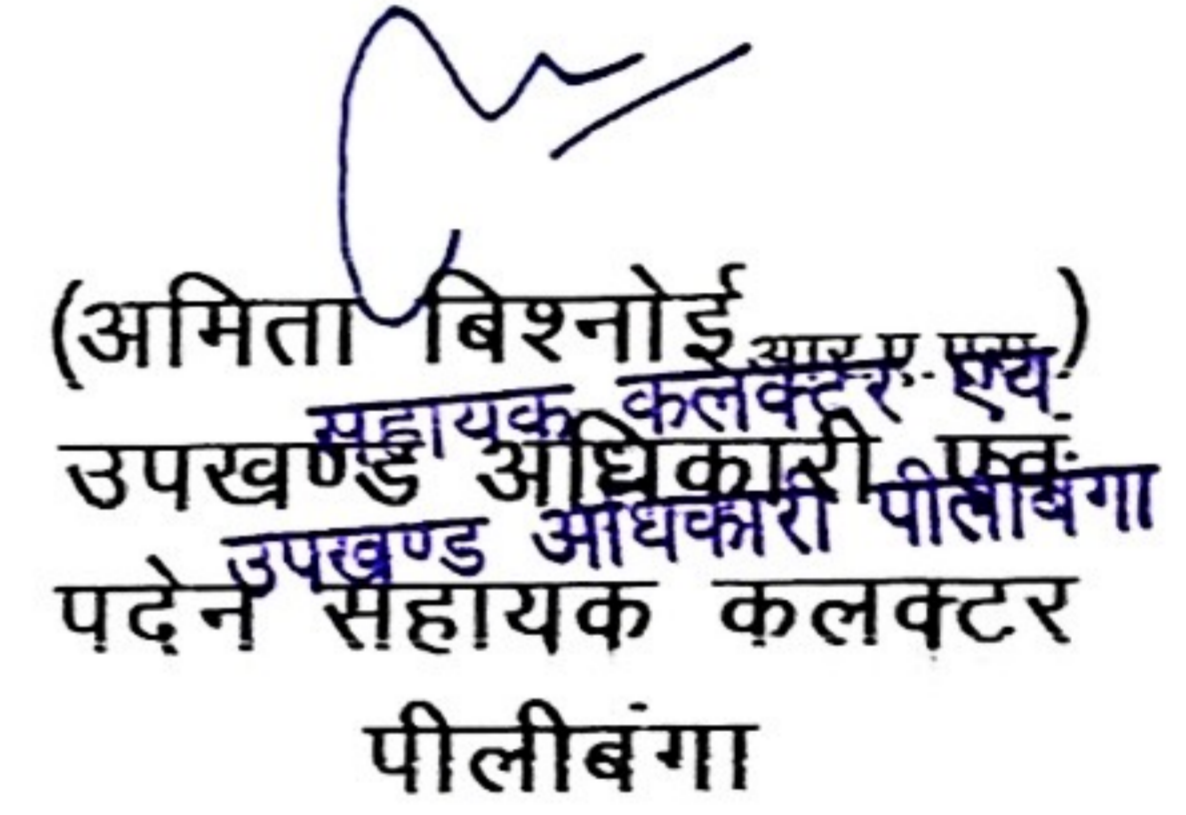 (अमिता बिश्नोई आर.ए.एस.)
सहायक कलेक्टर एवं
उपखण्ड अधिकारी एवं
उपखण्ड अधिकारी पीलीबंगा
पदेन सहायक कलक्टर
पीलीबंगा